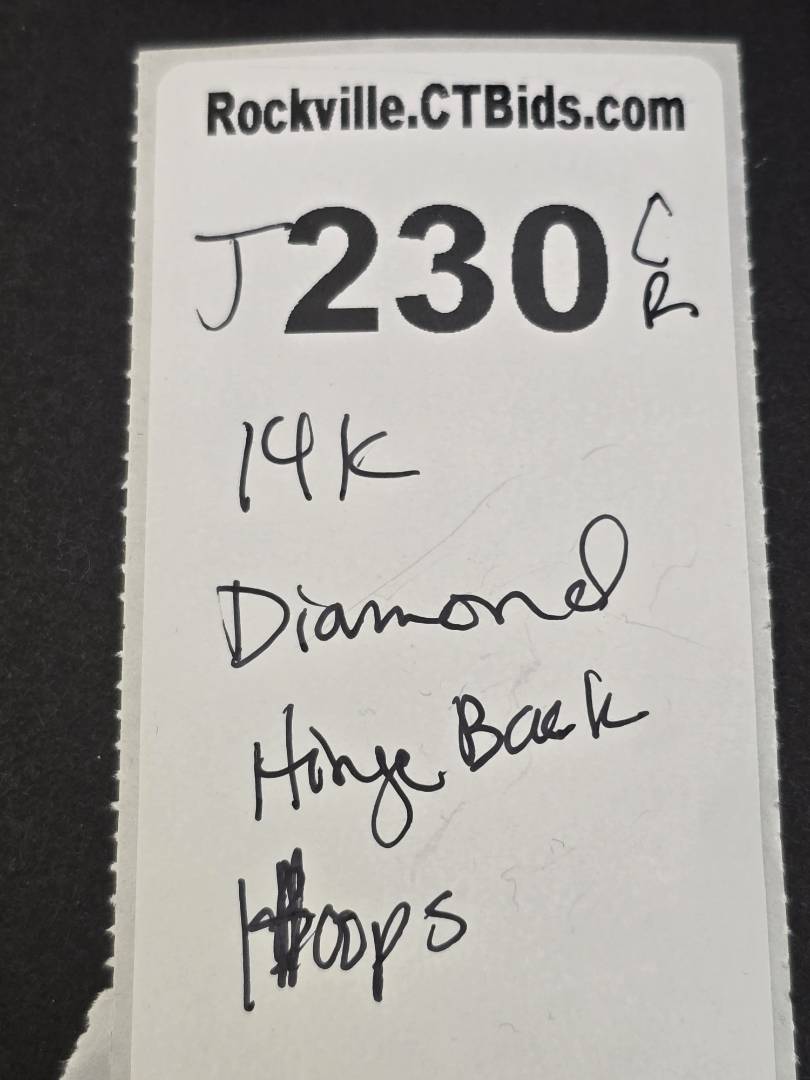 Rockville.CTBids.com
J230 CR
14K
Diamond
Hinge Back
Hoops